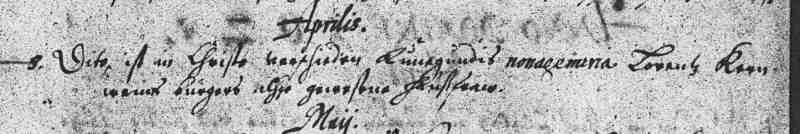 Aprilis.
8. Dito ist in Christo verschieden Kunegundis nonagenaria Lorentz Kern
weins burgers alhie gewesene Hausfraw.
Maij.